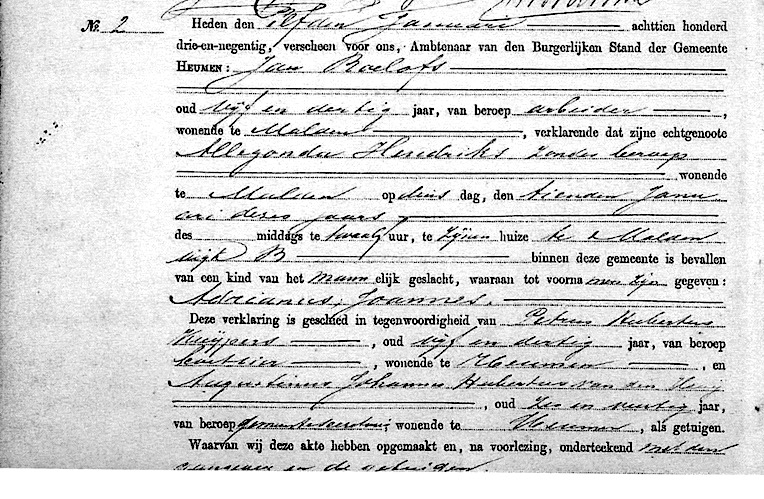 No. 2 Heden den elfden Januari achttien honderd
drie-en-negentig, verscheen voor ons, Ambtenaar van den Burgerlijken Stand der Gemeente
HEUMEN: Jan Roelofs
oud vijf en dertig jaar, van beroep arbeider,
wonende te Malden, verklarende dat zijne echtgenoote
Allegonda Hendriks zonder beroep
wonende
te Malden op dins dag, den tienden Janu
ari dezes jaars
des middags te twaalf uur, te zijnen huize te Malden
wijk B binnen deze gemeente is bevallen
van een kind van het mann elijk geslacht, waaraan tot voorna men zijn gegeven:
Adrianus, Joannes.
Deze verklaring is geschied in tegenwoordigheid van Petrus Hubertus
Kuijpers, oud vijf en dertig jaar, van beroep
, wonende te Heumen, en
Augustinus Johannes Hubertus van den
, oud zes en veertig jaar,
van beroep wonende te Heumen, als getuigen.
Waarvan wij deze akte hebben opgemaakt en, na voorlezing, onderteekend met den
aangever en de getuigen.